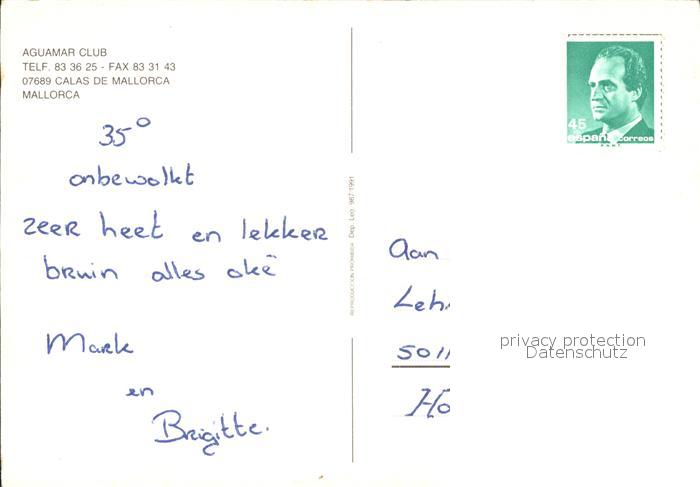 AGUAMAR CLUB
TELF. 83 36 25 - FAX 83 31 43
07689 CALAS DE MALLORCA
MALLORCA
35°
onbewolkt
zeer heet en lekker
bruin alles okë
Mark
en
Brigitte.
REPRODUCCION PROHIBIDA Dep. Leg. 967-1991
45
españa correos
Aan
Leh
5011
Ho
privacy protection
Datenschutz